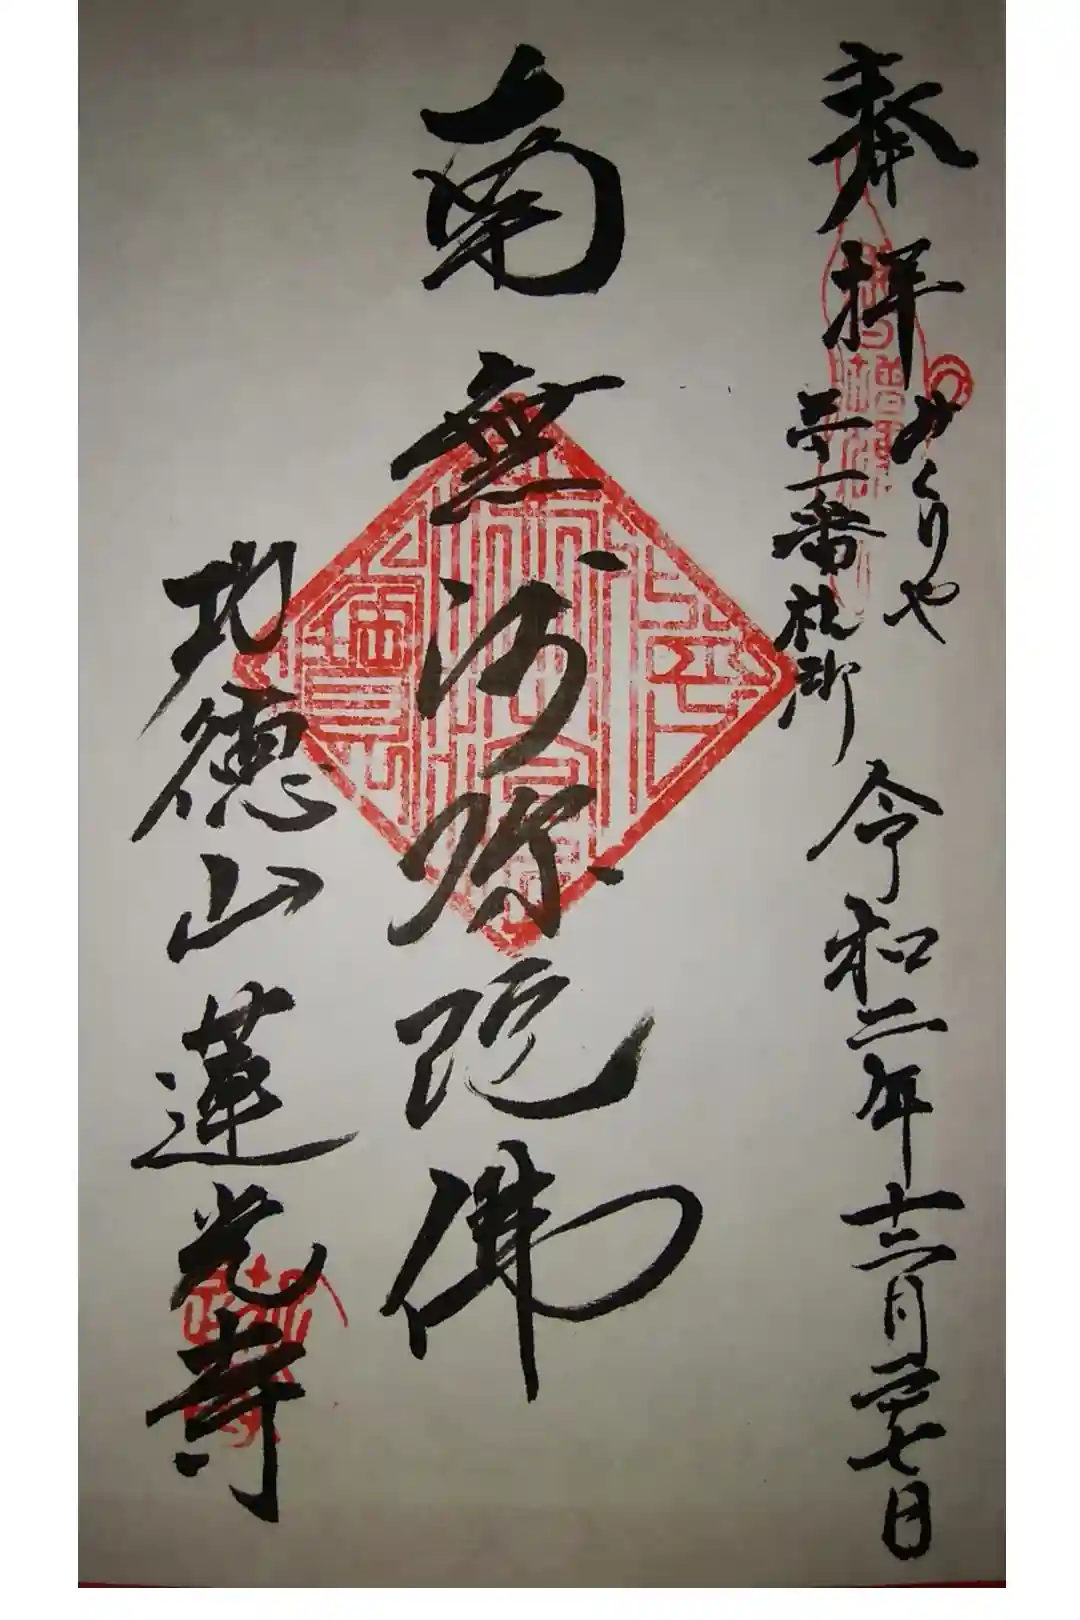 奉拝
みくりや
一番札所
令和二年十二月二十七日
南無阿弥陀佛
地徳山蓮光寺